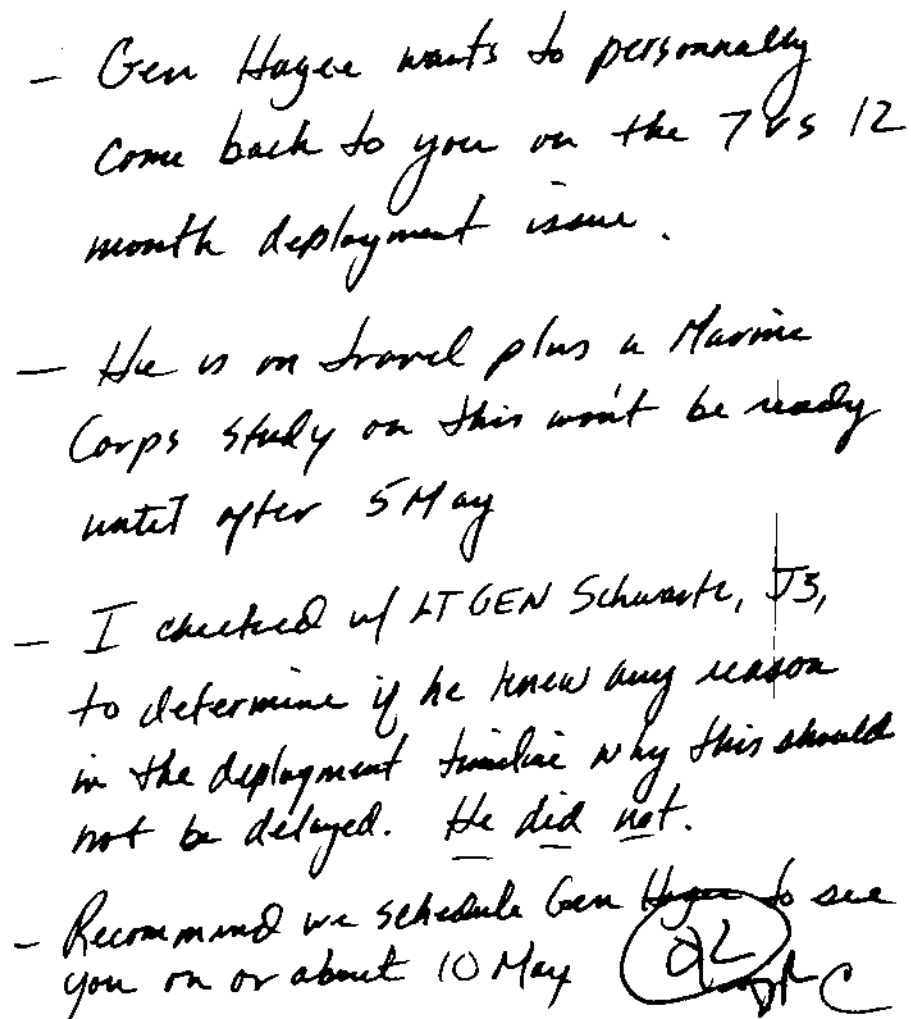 - Gen Hagee wants to personnally
come back to you on the 7 vs 12
month deployment issue.
- He is on travel plus a Marine
Corps study on this won't be ready
until after 5 May
- I checked w/ LT GEN Schwartz, J3,
to determine if he knew any reason
in the deployment timeline why this should
not be delayed. He did not.
- Recommend we schedule Gen Hagee to see
you on or about 10 May